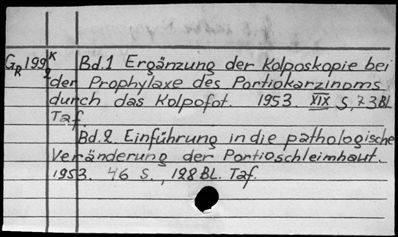 GR 199 K/2 Bd.1 Ergänzung der Kolposkopie bei
der Prophylaxe des Portiokarzinoms
durch das Kolpofot. 1953. XIX S, 73 Bl.
Taf.
Bd.2. Einführung in die pathologische
Veränderung der Portioschleimhaut.
1953. 46 S., 128 BL. Taf.